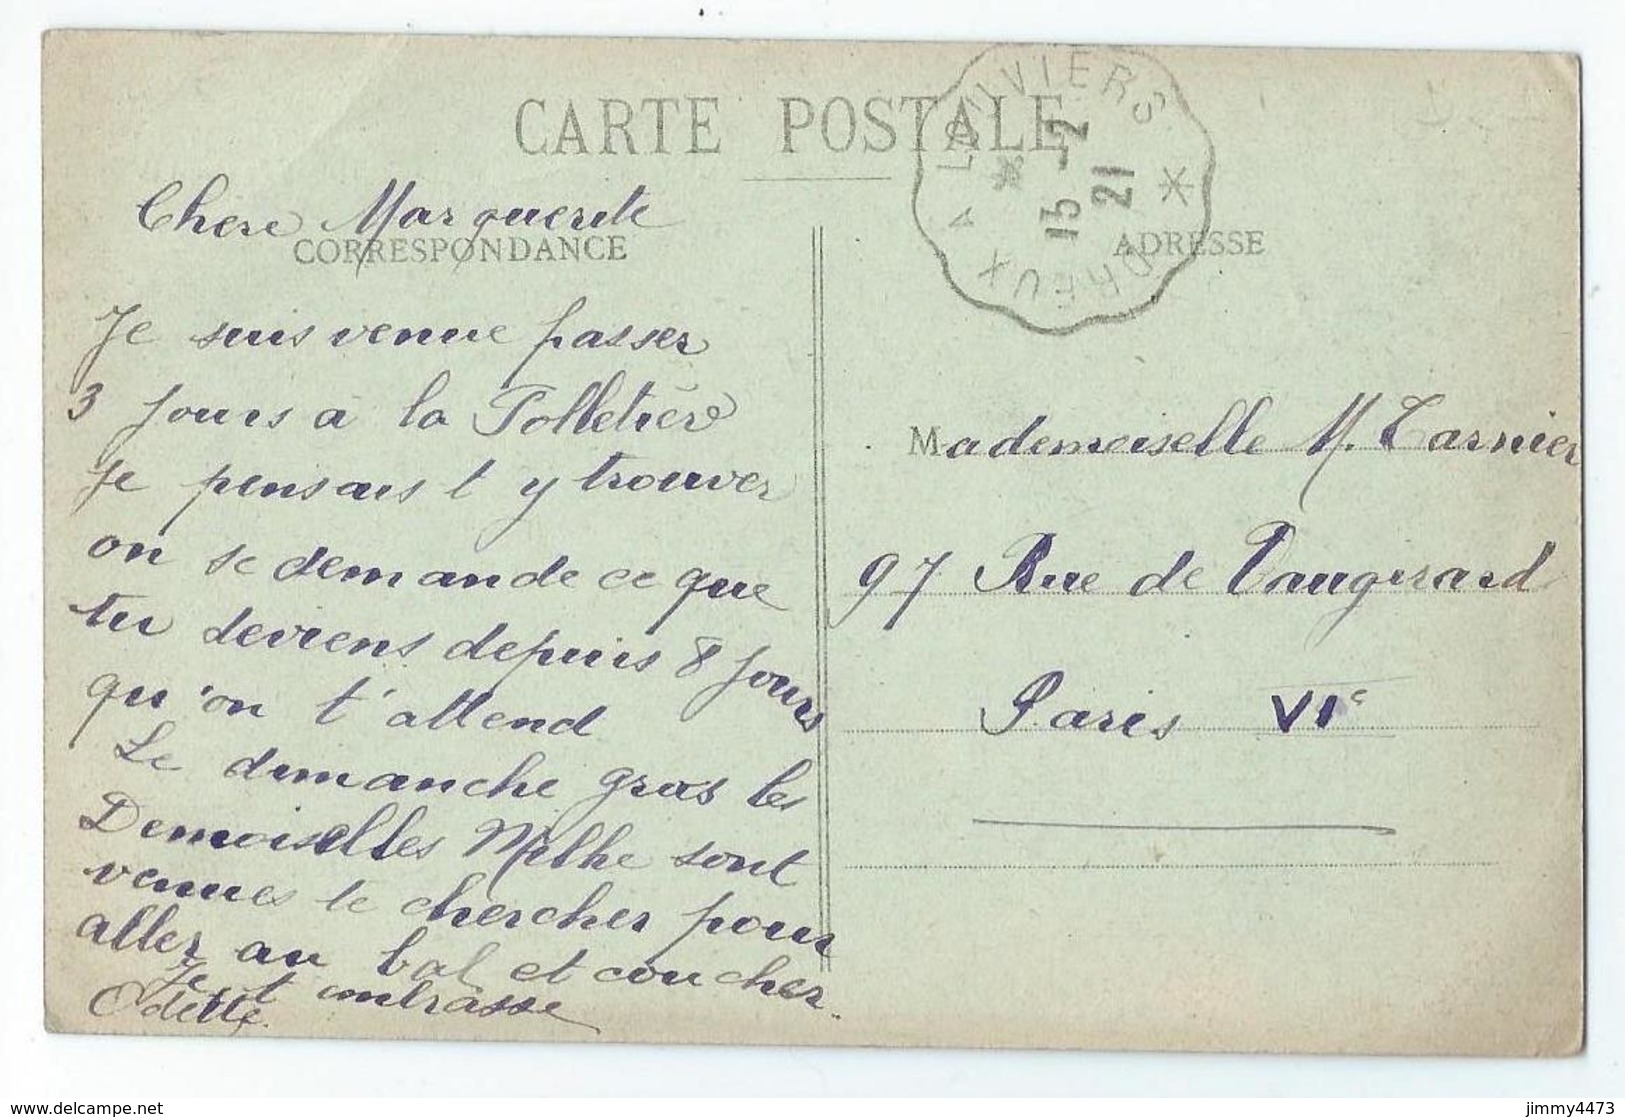 CARTE POSTALE
LOUVIERS
A DREUX
15 - 2
21
CORRESPONDANCE
ADRESSE
Chere Marguerite
Je suis venue passer
3 jours à la Polletière
Je pensais t y trouver
on se demande ce que
tu deviens depuis 8 jours
qu'on t'attend
Le dimanche gras les
Demoiselles Milhe sont
venues te chercher pour
aller au bal et coucher.
Je t embrasse
Odette
Mademoiselle M. Tarnier
97 Rue de Vaugirard
Paris VIe
jimmy4473